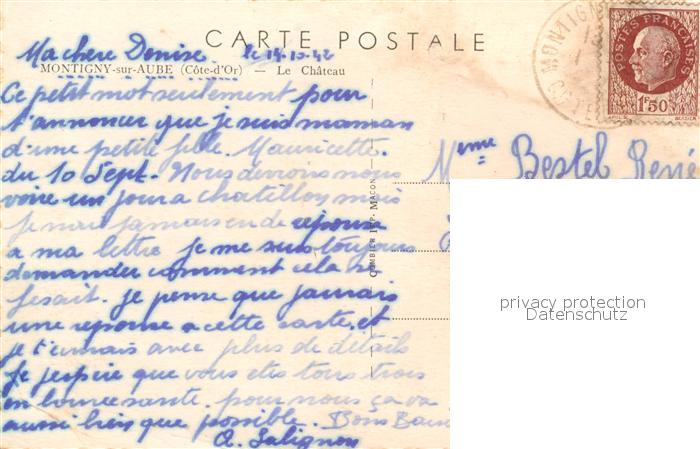 CARTE POSTALE
Ma chère Denise le 14-10-42
MONTIGNY-sur-AUBE (Côte-d'Or) — Le Château
Ce petit mot seulement pour
t'annoncer que je suis maman
d'une petite fille. Mauricette.
du 10 Sept. Nous devrions nous
voire un jour a chatillon mais
je n'ai jamais eu de réponse
a ma lettre je me suis toujours
demander comment cela se
fesait. je pense que j'aurais
une reponse a cette carte, et
je t'ecrirais avec plus de détails
Je j'espère que vous etes tous trois
en bonne sante. pour nous ça va
aussi bien que possible. Bons
COMBIER IMP. MACON
POSTES FRANÇAISES
1F50
MONTIGN
Mme Bestel René
privacy protection
Datenschutz